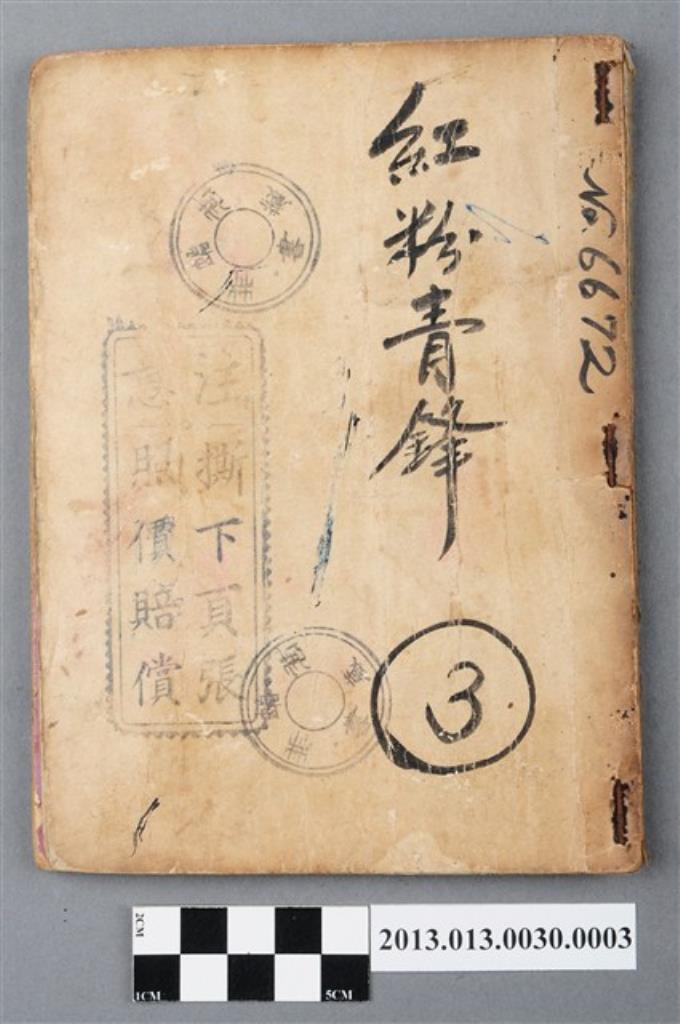 No. 6672
紅粉青鋒
3
注 撕下頁張
意 照價賠償
2CM
1CM
5CM
2013.013.0030.0003